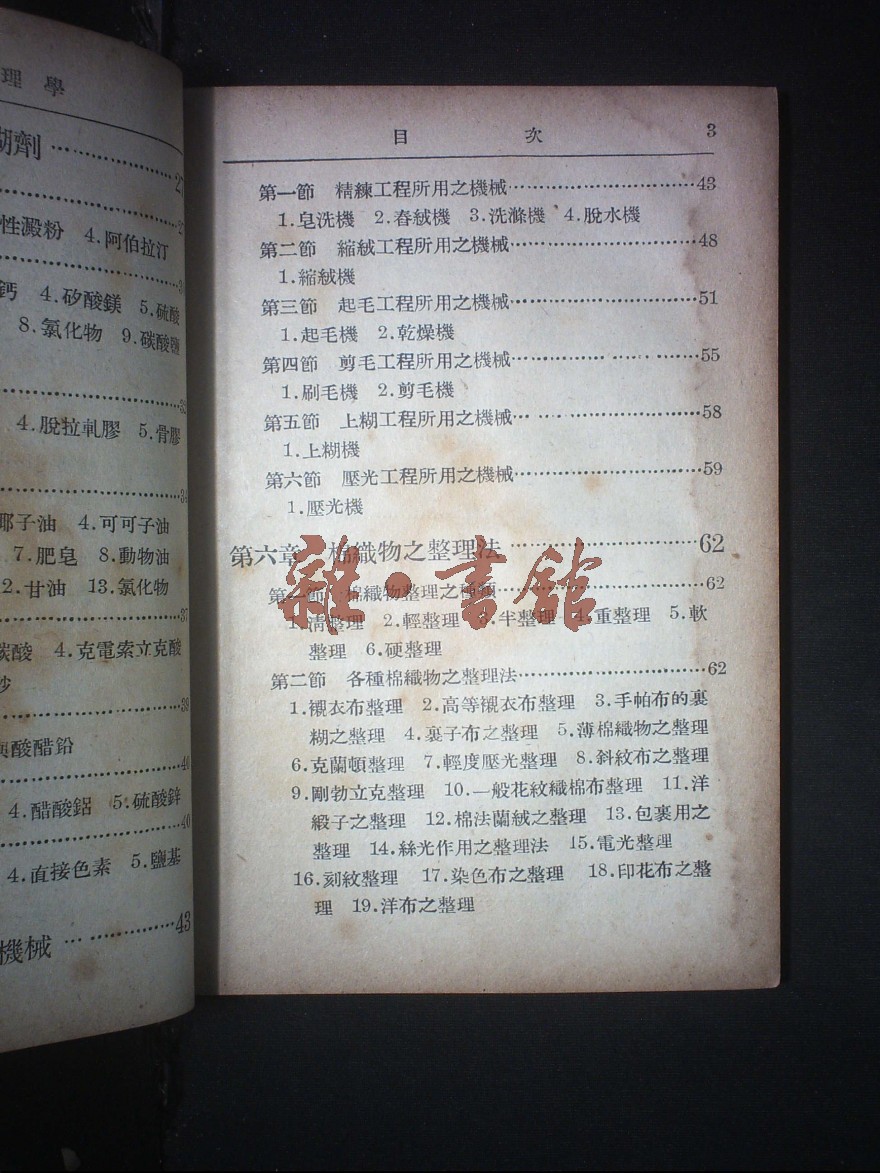 理學
糊劑……27
……27
性澱粉 4.阿伯拉汀
鈣 4.矽酸鎂 5.硫酸
8.氯化物 9.碳酸鹽
4.脫拉軋膠 5.骨膠
……34
椰子油 4.可可子油
7.肥皂 8.動物油
2.甘油 13.氯化物
……37
碳酸 4.克電索立克酸
……39
酸醋鉛
……40
4.醋酸鋁 5.硫酸鋅
……40
4.直接色素 5.鹽基
機械……43
目次 3
第一節 精練工程所用之機械……43
1.皂洗機 2.舂絨機 3.洗滌機 4.脫水機
第二節 縮絨工程所用之機械……48
1.縮絨機
第三節 起毛工程所用之機械……51
1.起毛機 2.乾燥機
第四節 剪毛工程所用之機械……55
1.刷毛機 2.剪毛機
第五節 上糊工程所用之機械……58
1.上糊機
第六節 壓光工程所用之機械……59
1.壓光機
第六章 棉織物之整理法……62
第一節 棉織物整理之種類……62
1.清整理 2.輕整理 3.半整理 4.重整理 5.軟
整理 6.硬整理
第二節 各種棉織物之整理法……62
1.襯衣布整理 2.高等襯衣布整理 3.手帕布的裏
糊之整理 4.裏子布之整理 5.薄棉織物之整理
6.克蘭頓整理 7.輕度壓光整理 8.斜紋布之整理
9.剛勃立克整理 10.一般花紋織棉布整理 11.洋
緞子之整理 12.棉法蘭絨之整理 13.包裹用之
整理 14.絲光作用之整理法 15.電光整理
16.刻紋整理 17.染色布之整理 18.印花布之整
理 19.洋布之整理
雜·書館